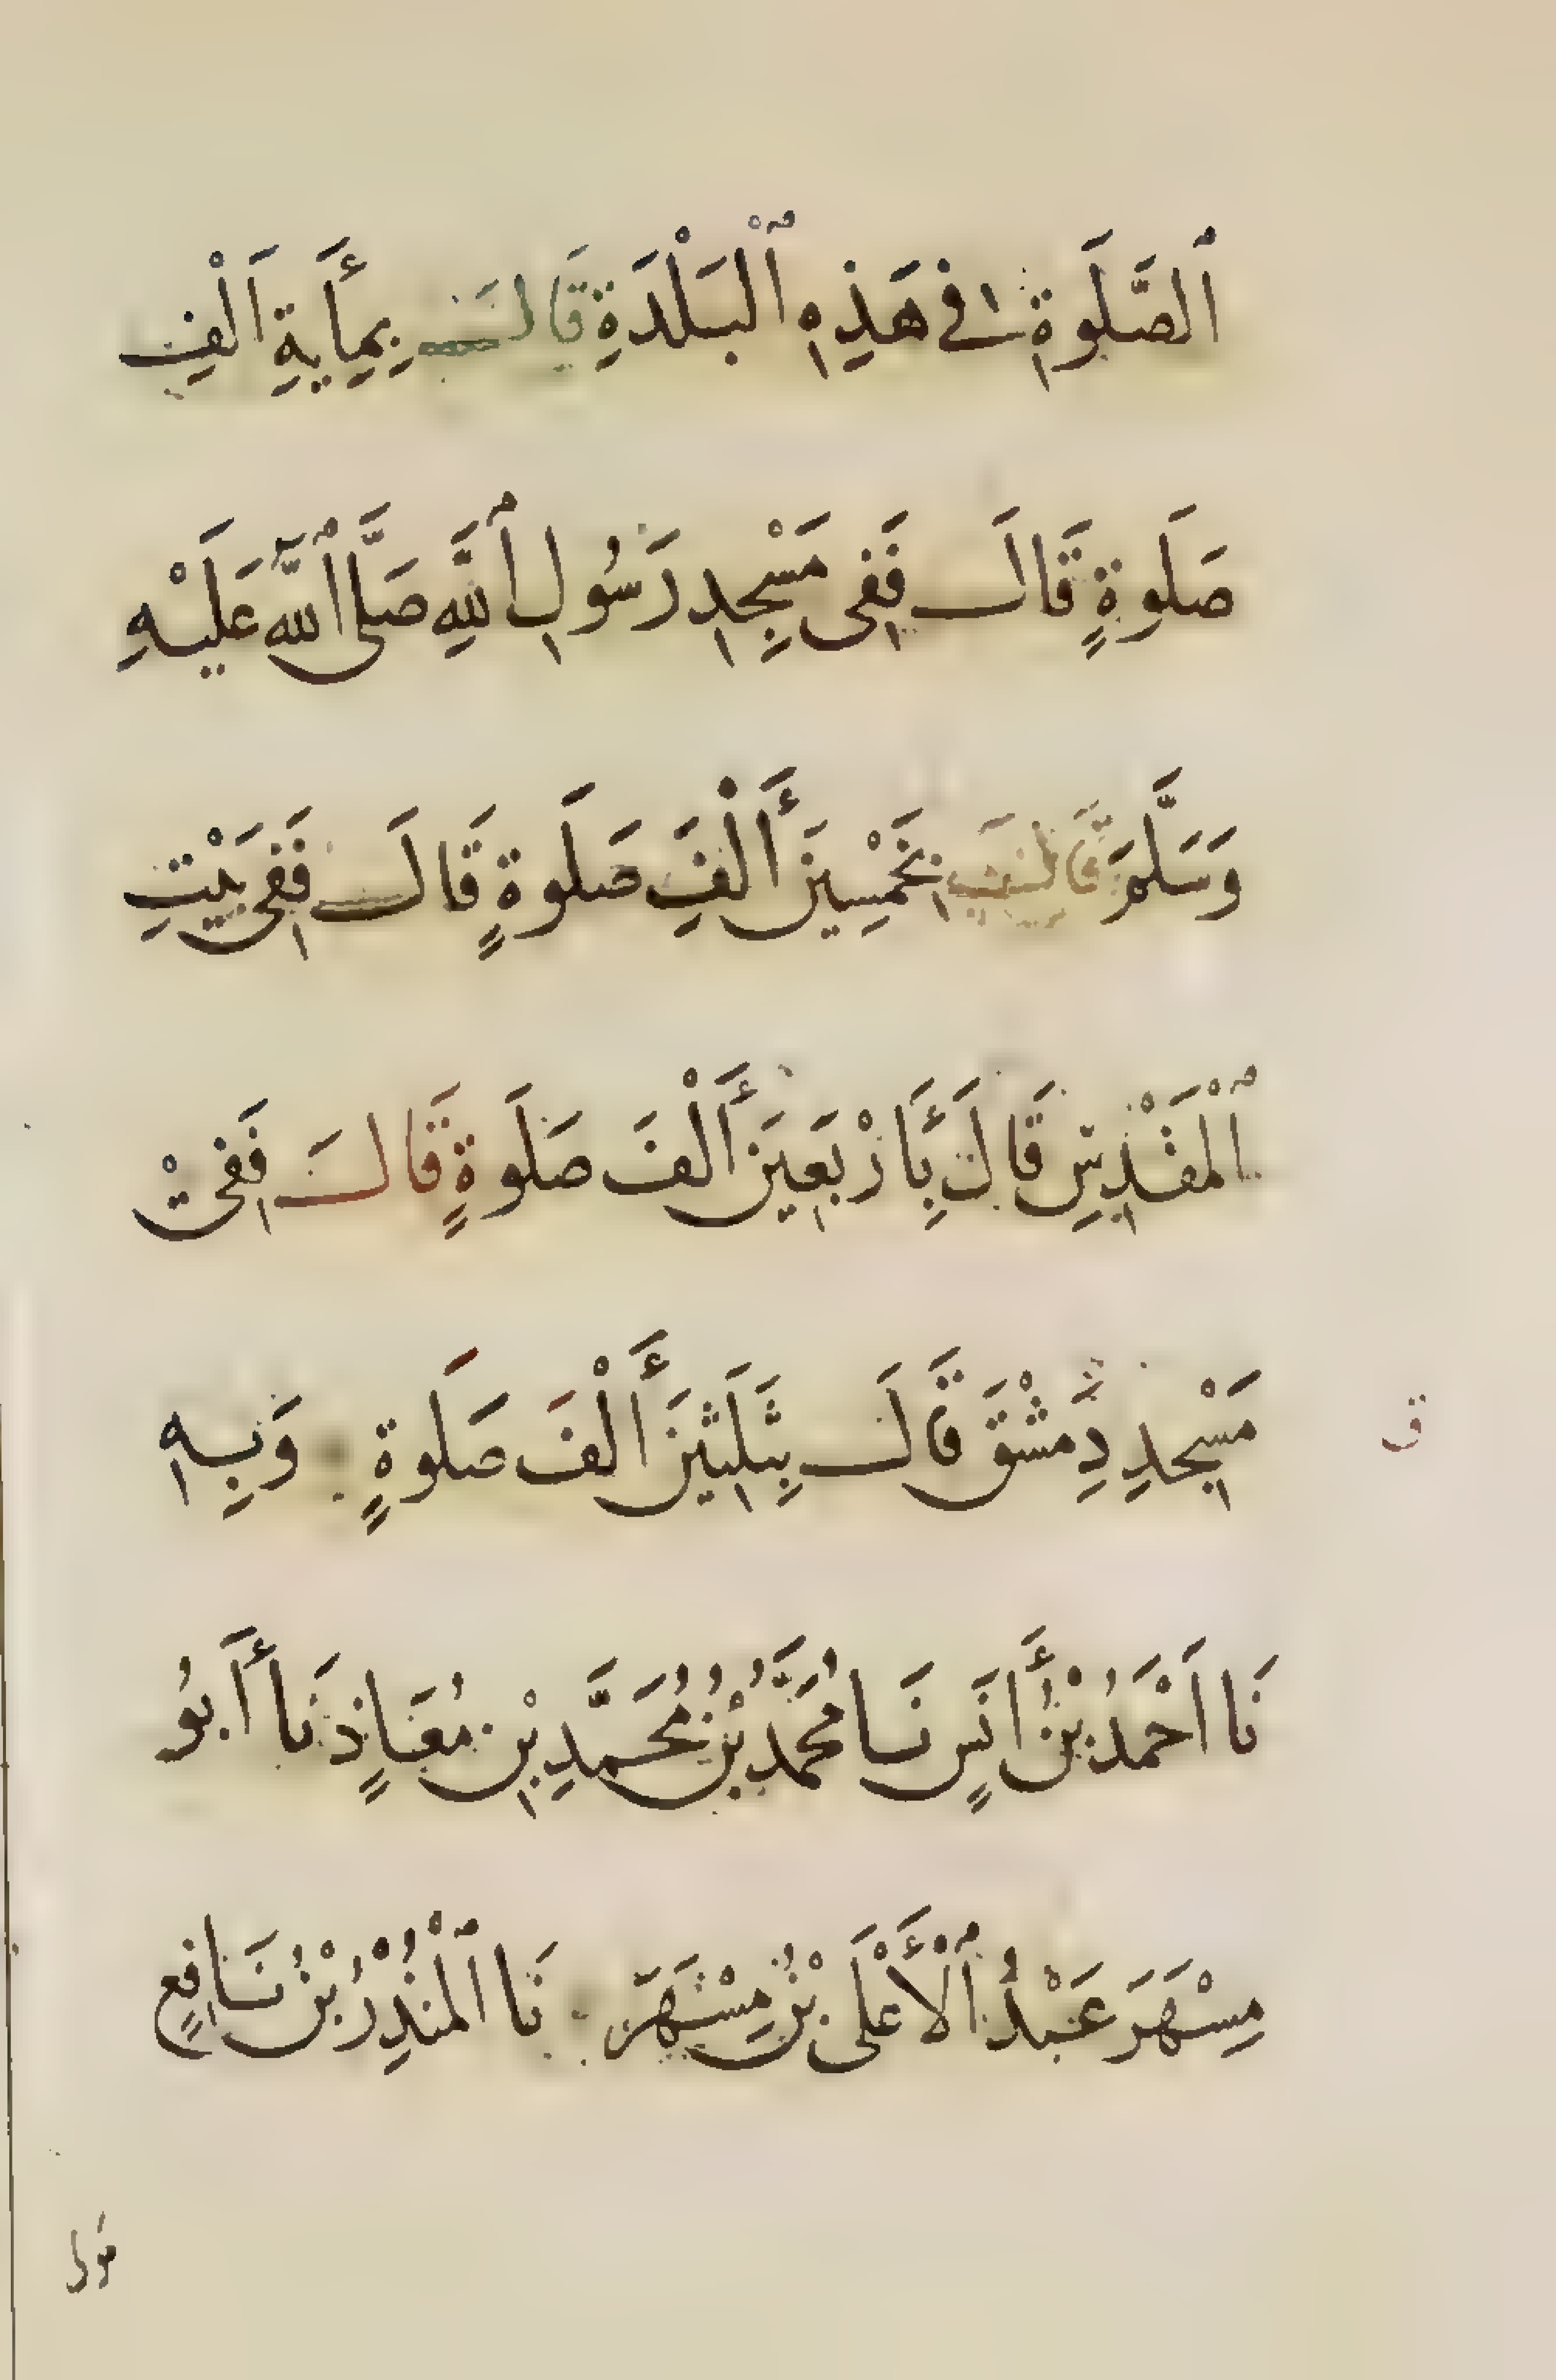 ٱلصَّلَوةِ فِي هَذِهِ ٱلْبَلْدَةِ قَالَ بِمِأَيةِ اَلْفِ
صَلَوةٍ قَالَ فَفِى مَسْجِدِ رَسُولِ ٱللَّهِ صَلَّى ٱللَّهُ عَلَيْهِ
وَسَلَّمَ قَالَ بِخَمْسِينَ أَلْفِ صَلَوةٍ قَالَ فَفِى بَيْتِ
ٱلْمَقْدِسِ قَالَ بِأَرْبَعِينَ أَلْفَ صَلَوةٍ قَالَ فَفِى
مَسْجِدِ دِمَشْقَ قَالَ بِثَلَثِينَ أَلْفَ صَلَوةٍ وَبِهِ
ق
نَا اَحْمَدُ بْنُ أَنَسٍ نَا مُحَمَّدُ بْنُ مُحَمَّدِ بْنِ مُعَاذٍ نَا أَبُو
مِسْهَرَ عَبْدُ ٱلْأَعْلَى بْنُ مِسْهَرَ نَا ٱلْمُنْذِرُ بْنُ نَافِعٍ